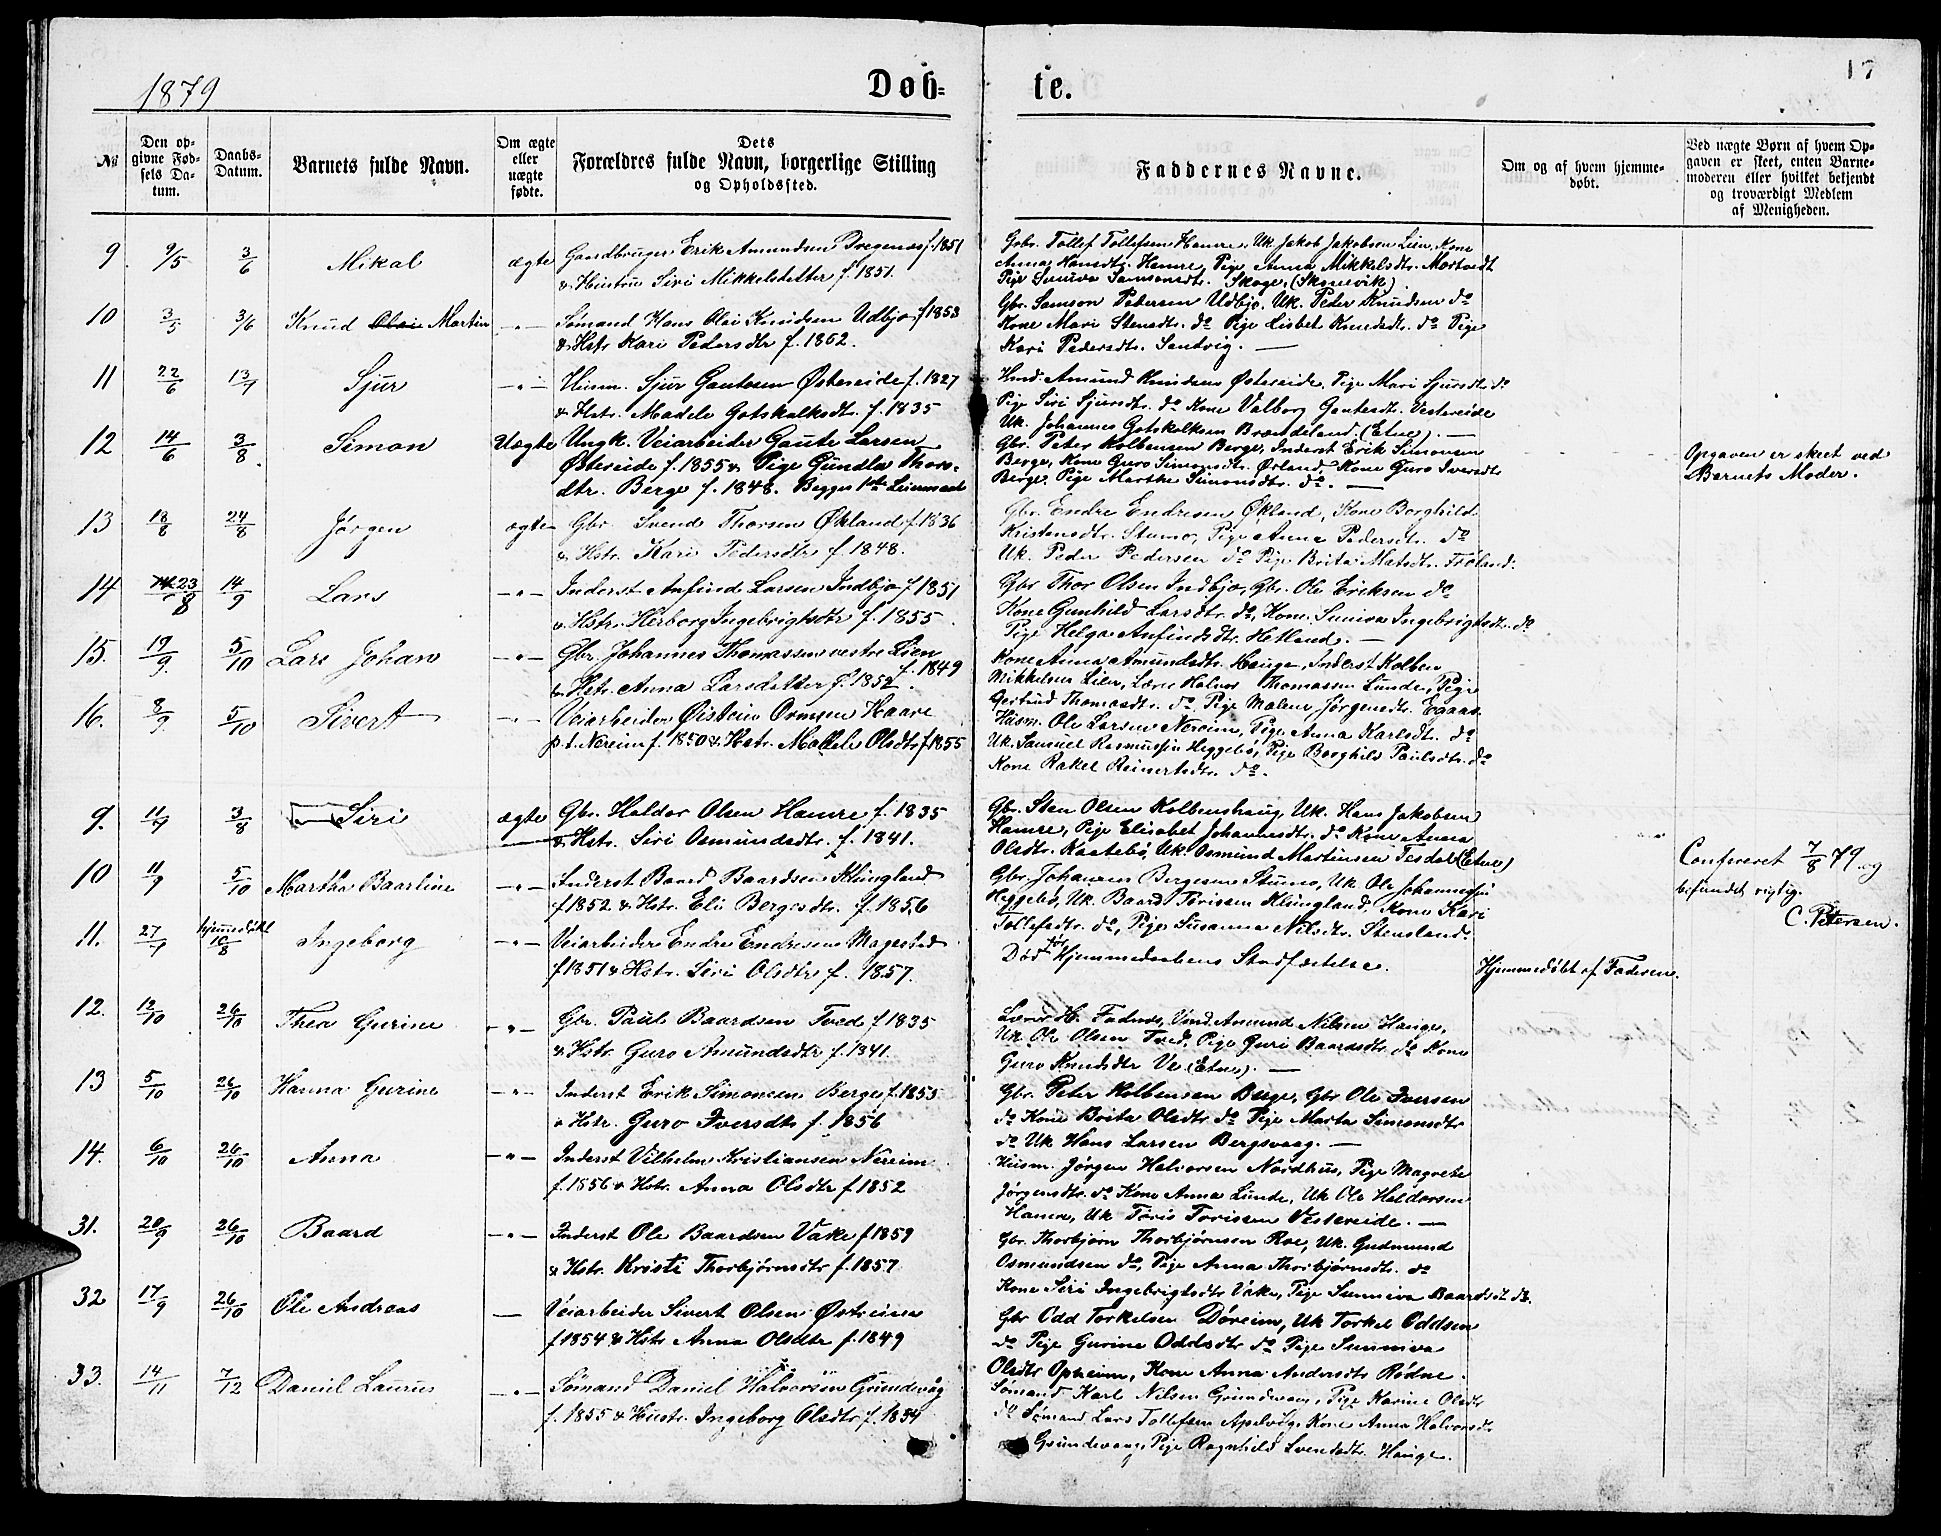 1879
Døb- te.
17
№
Den opgivne Fødsels Datum.
Daabs-Datum.
Barnets fulde Navn.
Om ægte eller uægte fødte.
Dets Forældres fulde Navn, borgerlige Stilling og Opholdssted.
Faddernes Navne.
Om og af hvem hjemmedøbt.
Ved uægte Børn af hvem Opgaven er skeet, enten Barnemoderen eller hvilket bekjendt og troværdigt Medlem af Menigheden.
9. 9/5 3/6 Mikal ægte Gaardbruger Erik Amundsen f. 1851
& Hustru Siri Mikkelsdatter f. 1851.
Gbr. Tollef Tollefsen Hamre, Uk. Jakob Jakobsen Lien, Kone
Anna Hansdtr. Hamre, Pige Anna Mikkelsdtr. Mortvedt
Pige Sunniva Samsonsdtr. Skoge, (Skonevik).
10 3/5 3/6 Knud Olai Martin -"- Sømand Hans Olai Knudsen Udbjo f. 1853
& Hstr. Kari Pedersdtr f. 1852.
Gbr. Samson Pedersen Udbjo, Uk. Peder Knudsen do
Kone Mari Stensdtr. do Pige Lisbet Knudsdtr. do Pige
Kari Pedersdtr. Sandvig. —
11 22/6 13/7 Sjur -"- Husm. Sjur Gautesen Østereide f. 1827
& Hstr. Madele Gotskalksdtr. f. 1835
Hmd. Amund Knudsen Østereide, Pige Mari Sjursdtr. do
Pige Siri Sjursdtr. do Kone Valborg Gautesdtr. Vestereide
Uk. Johannes Gotskalksen Brændeland (Etne). —
12 14/6 3/8 Simon Uægte Ungk. Veiarbeider Gaute Larsen
Østereide f. 1855 & Pige Gundla Thors-
dtr. Berge f. 1848. Begges 1ste Leiermaal
Gbr. Peter Kolbensen Berge, Inderst Erik Simonsen
Berge, Kone Guro Simonsdtr. Ørland, Kone Guro Iversdtr
Berge, Pige Marthe Simonsdtr. do. —
Opgaven er skeet ved
Barnets Moder.
13 18/8 24/8 Jørgen ægte Gbr. Svend Thorsen Økland f. 1836
& Hstr. Kari Pedersdtr f. 1848.
Gbr. Endre Endresen Økland, Kone Borghild
Kristensdtr. Stumo, Pige Anna Pedersdtr. do
Uk. Peder Pedersen do Pige Brita Matsdtr. Frøland.
14 23/8 14/9 Lars -"- Inderst Anfind Larsen Indbjo f. 1851
& Hstr. Herborg Ingebrigtsdtr f. 1855.
Gbr Thor Olsen Indbjo, Gbr. Ole Eriksen do
Kone Gunhild Larsdtr. do, Kone Sunniva Ingebrigtsdtr. do
Pige Helga Anfindsdtr. Hetland. —
15. 19/9 5/10 Lars Johan -"- Gbr. Johannes Thomassen vestre Lien
f. 1849
& Hstr. Anna Larsdatter f. 1852.
Kone Anna Amundsdtr. Hauge, Inderst Kolben
Mikkelsen Lien, Lærer Halvor Thomassen Lunde, Pige
Gertrud Thomasdtr. do, Pige Malene Jørgensdtr. Egaas
16. 8/9 5/10 Sivert -"- Veiarbeider Øistein Ormsen Haare
p.t. Nereim f. 1850 & Hstr. Madele Olsdtr f. 1855
Husm. Ole Larsen Nereim, Pige Anna Karlsdtr. do
Uk. Samuel Rasmussen Heggebø, Pige Borghild Paulsdtr. do
Kone Rakel Reinertsdtr. do.
9. 11/7 3/8 Siri ægte Gbr. Haldor Olsen Hamre f. 1835
& Hstr. Siri Osmundsdtr. f. 1841.
Gbr. Sten Olsen Kolbenshaug, Uk. Hans Jakobsen
Hamre, Pige Elisabet Johannesdtr. do Kone Anna
Olsdtr. Kaatebø, Uk. Osmund Martinsen Tesdal (Etne)
Confereret 7/8 79 og
befundet rigtig.
C. Petersen.
10 11/9 5/10 Martha Baarline -"- Inderst Baard Baardsen Klungland
f. 1852 & Hstr. Eli Bergesdtr. f. 1856
Gbr. Johannes Bergesen Stumo, Uk. Ole Johannessen
Heggebø, Uk. Baard Torissen Klungland, Kone Kari
Tollefsdtr. do, Pige Susanna Nilsdtr. Stensland.
11. 27/7 hjemmedøbt 10/8 Ingeborg -"- Veiarbeider Endre Endresen Magestad
f. 1851 & Hstr. Siri Olsdtr f. 1857.
Død før Hjemmedaabens Stadfæstelse.
Hjemmedøbt af Faderen.
12. 12/10 26/10 Thea Gurine -"- Gbr. Paul Baardsen Tved f. 1835
& Hstr. Guro Amundsdtr f. 1841.
Lærer H. Fadnes, Vmd. Amund Nilsen Hauge,
Uk. Ole Olsen Tved, Pige Guri Baardsdtr. do Kone
Guro Knudsdtr Ve (Etne). —
13 5/10 26/10 Hanna Gurine -"- Inderst Erik Simonsen Berge f. 1853
& Hstr. Guro Iversdtr f. 1856
Gbr. Peter Kolbensen Berge, Gbr Ole Iversen
do Kone Brita Olsdtr do Pige Marta Simonsdtr
do Uk Hans Larsen Bergsvaag. —
14. 6/10 26/10 Anna -"- Inderst Vilhelm Kristiansen Nereim
f. 1856 & Hstr. Anna Olsdtr f 1852
Husm. Jørgen Halvorsen Nordhus, Pige Magrete
Jørgensdtr. do Kone Anna Lunde, Uk Ole Haldorsen
Hamre, Uk Toris Torissen Vestereide. —
31. 20/9 26/10 Baard -"- Inderst Ole Baardsen Vake f 1859
& Hstr. Kristi Thorbjørnsdtr f. 1857
Gbr. Thorbjørn Thorbjørnsen Roe, Uk. Gudmund
Osmundsen do, Pige Anna Thorbjørnsdtr. do
Kone Siri Ingebrigtsdtr Vake, Pige Sunniva Baardsdtr do.
32 17/9 26/10 Ole Andreas — Veiarbeider Sivert Olsen Østreim
f. 1854 & Hstr Anna Olsdtr f. 1849
Gbr Odd Torkelsen Døreim, Uk Torkel Oddsen
do Pige Gurine Oddsdtr do Pige Sunniva
Olsdtr Opheim, Kone Anna Andersdtr Rødne.
33. 14/11 7/12 Daniel Laurus -"- Sømand Daniel Halvorsen Grundevåg
f. 1855 & Hustr. Ingeborg Olsdtr f. 1854
Sømand Karl Nilsen Grundevaag, Pige Karine Olsdtr
do Sømand Lars Tollefsen Apelvig, Kone Anna Halvorsdtr
Grundevaag, Pige Ragnhild Svendsdtr. Hauge.